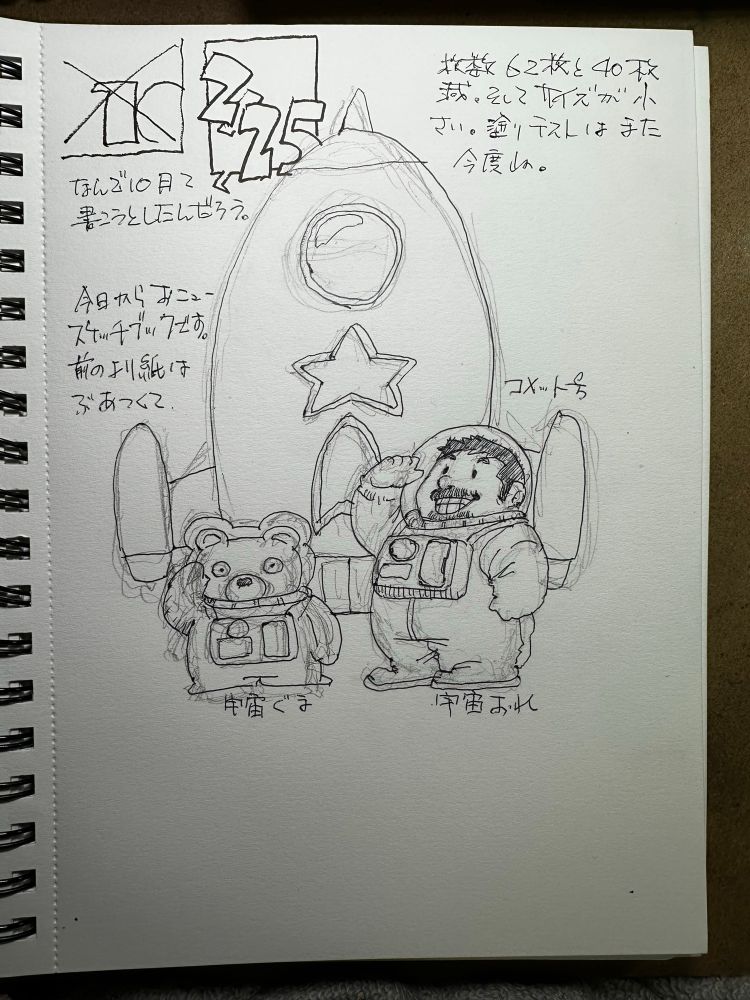 10
2/25
なんで10月て
書こうとしたんだろう。
枚数62枚と40枚
減。そしてサイズが小
さい。塗りテストはまた
今度ね。
今日からおニュー
スケッチブックです。
前のより紙は
ぶあつくて、
コメット号
宇宙ぐま
宇宙おれ